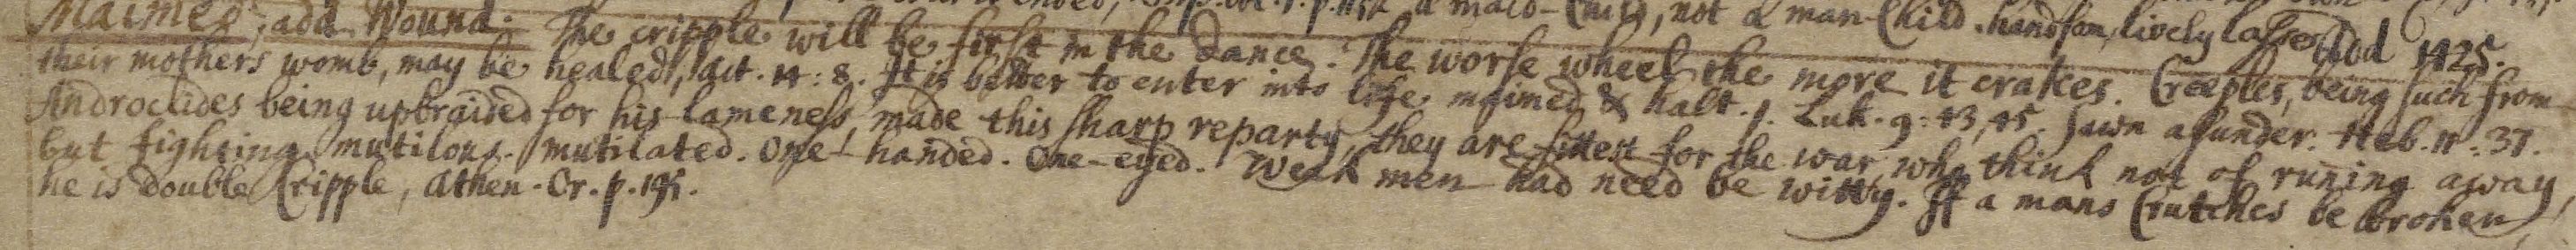 a maid-Child, not a man-Child. handsom, lively lasses. Add 1425.
Maimed; add Wound. The cripple will be first in the dance. The worse wheel the more it crakes. Creeples, being such from
their mothers womb, may be healed, Act. 14:8. It is better to enter into life maimed & halt. Luk. 9:43,45. sawn asunder. Heb. 11:37.
Androclides being upbraided for his lameness, made this sharp reparty, they are fittest for the war who think not of runing away,
but fighting. mutilous. mutilated. One-handed. One-eyed. Weak men had need be witty. If a mans Crutches be broken,
he is double Cripple, Athen. Or. p. 195.